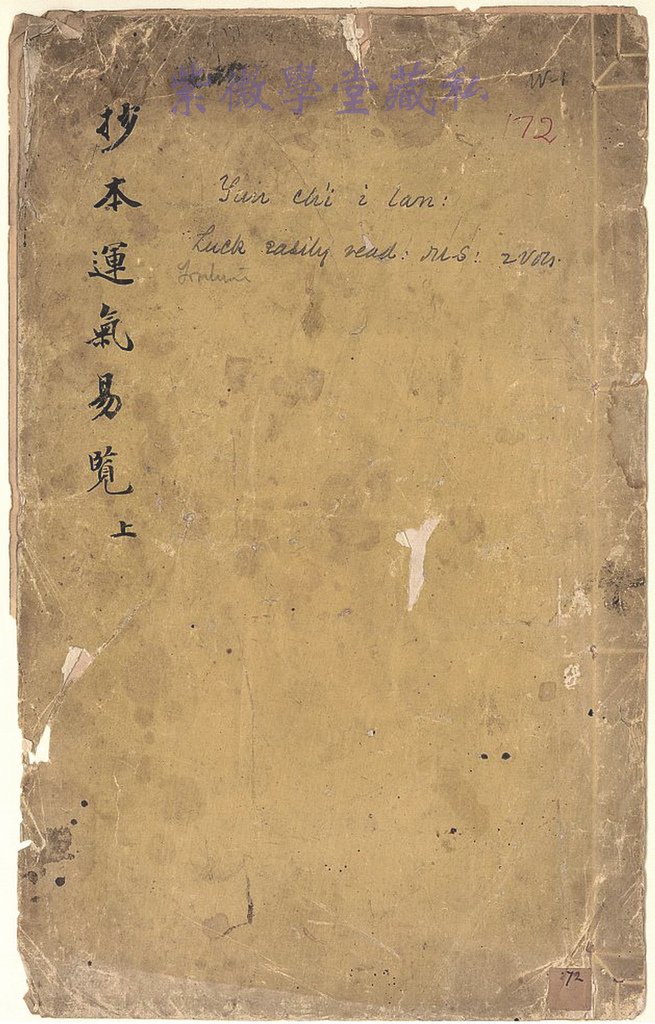 紫微學堂藏私
W-1
172
抄本運氣易覧上
Yun chi i lan:
Luck easily read: MS: 2 vols.
172